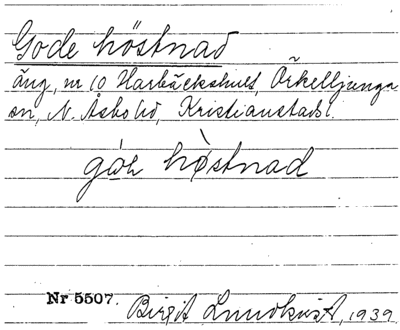 Gode höstnad
äng, nr 10 Harbäckshult, Örkelljunga
sn, N. Åsbo hd, Kristianstads l.
höstnad
Nr 5507. Birgit Lundkvist, 1939